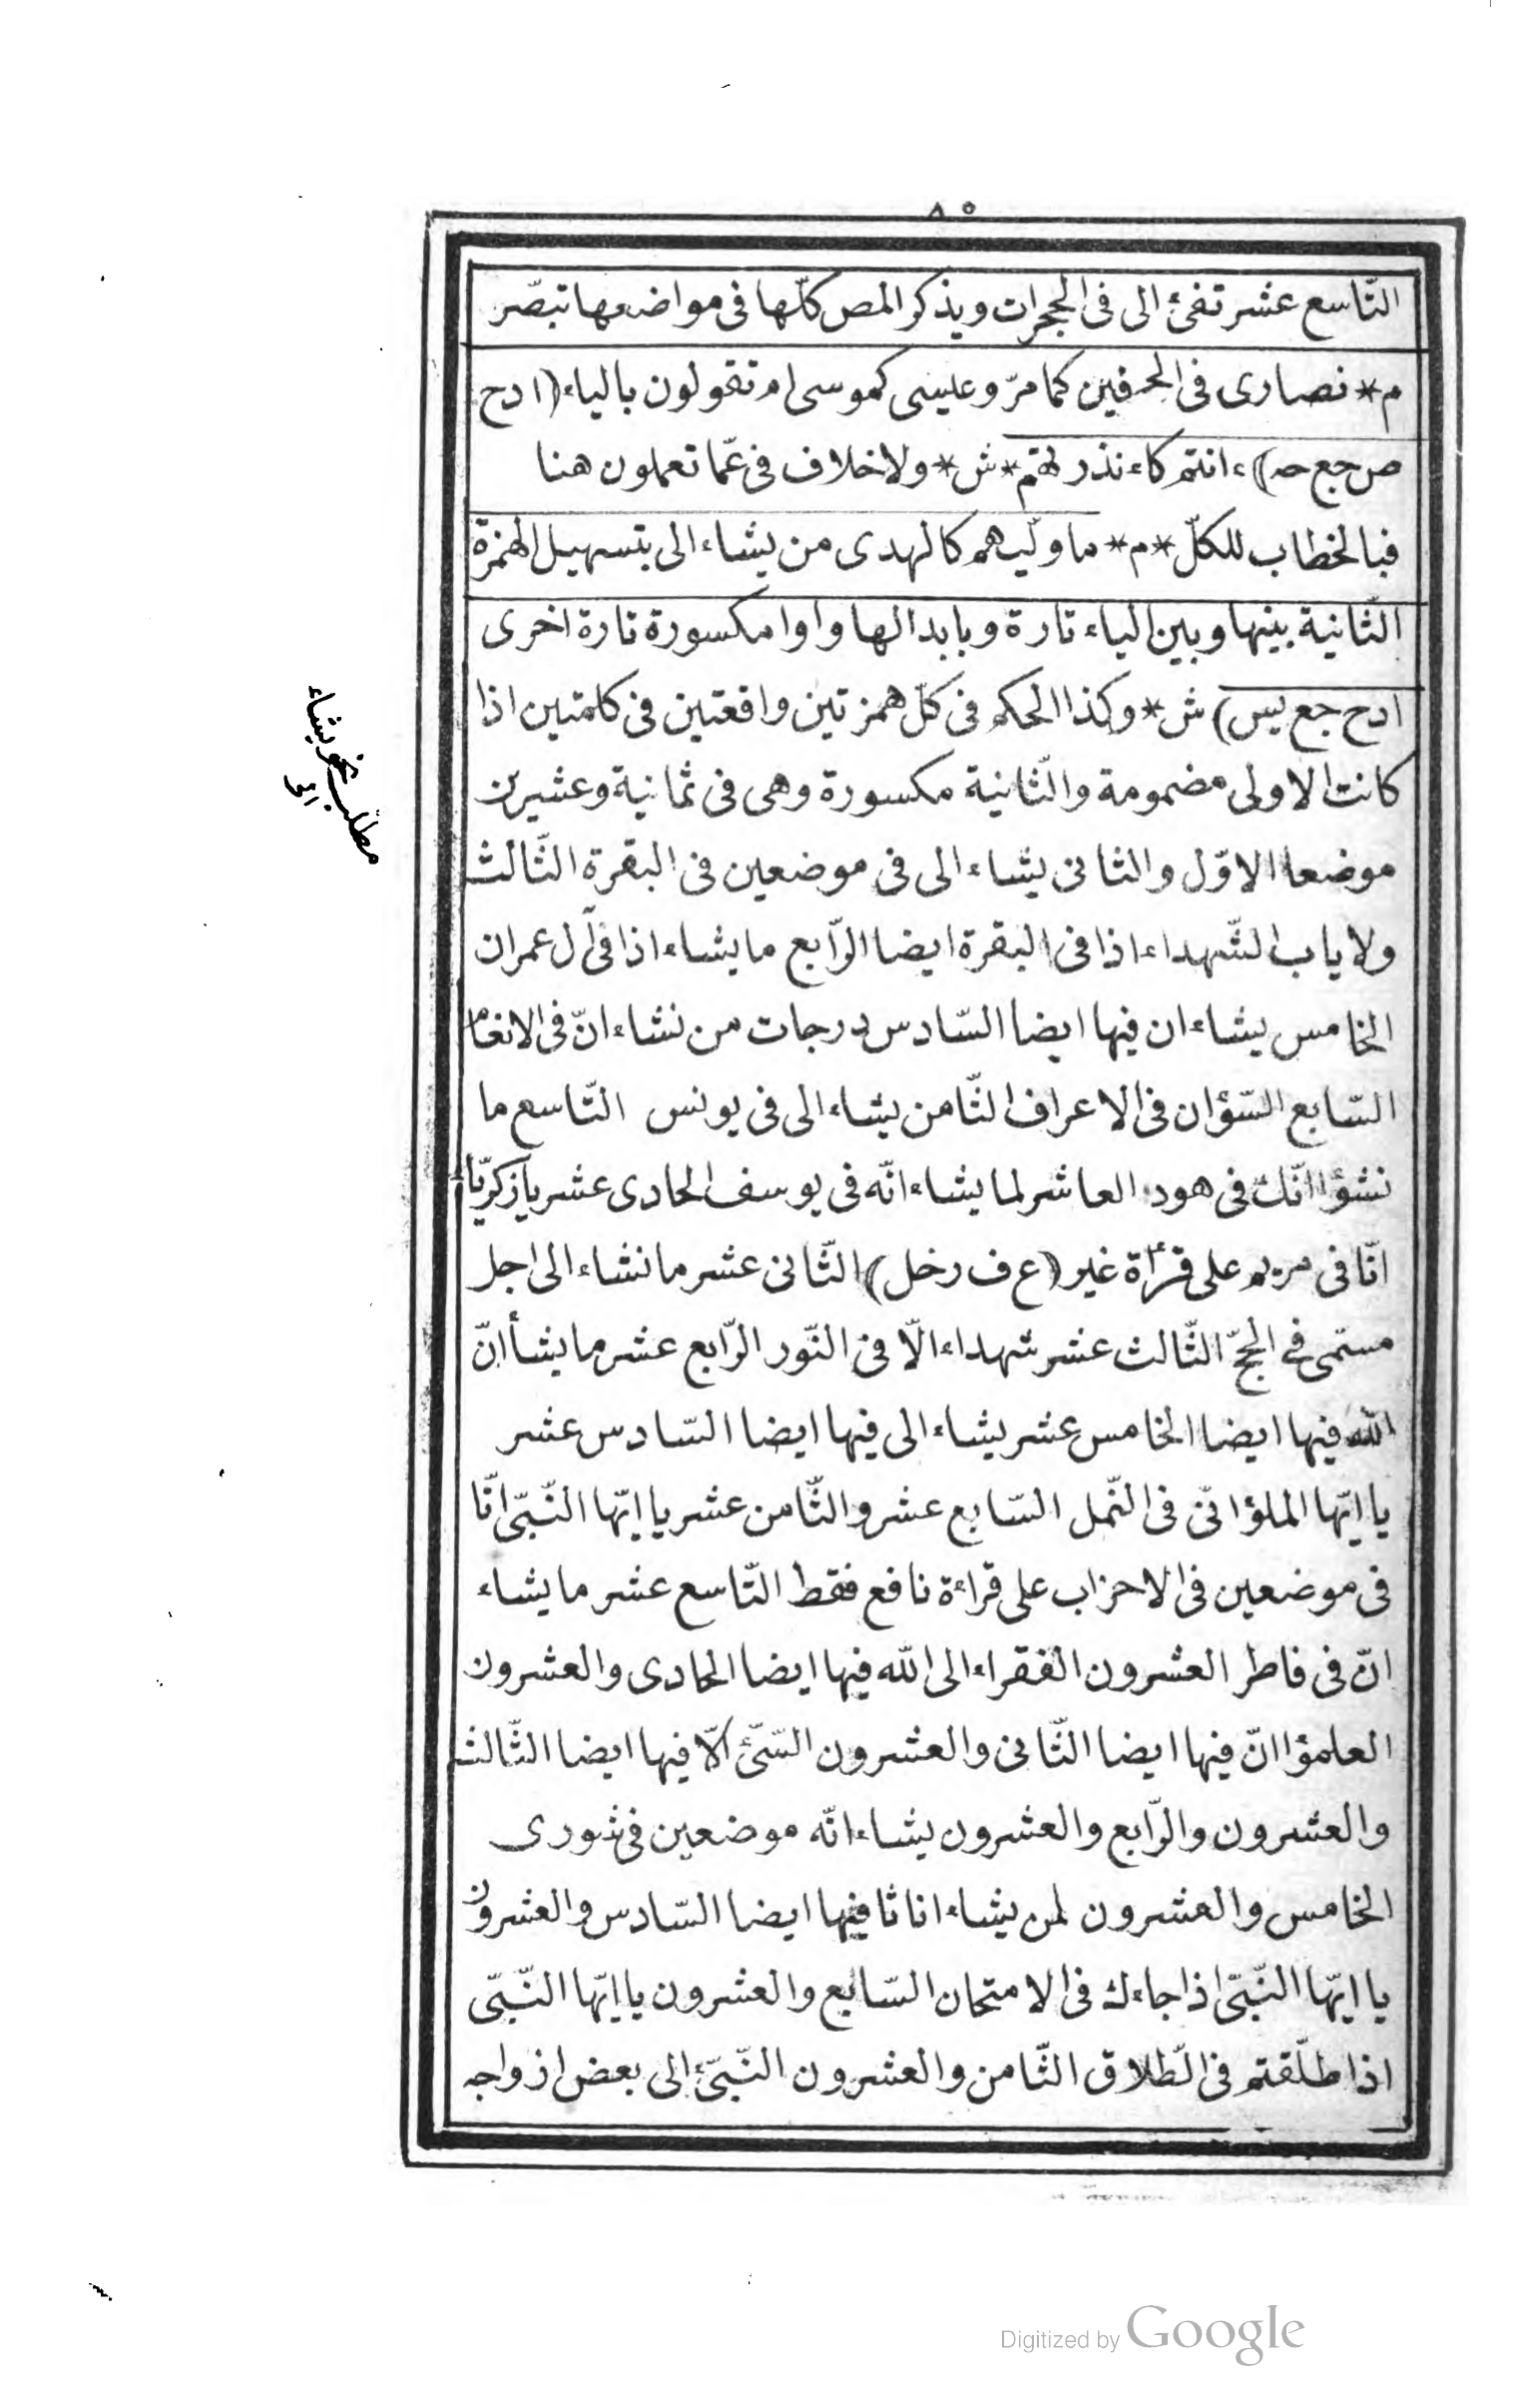 ٨٥
التّاسع عشر تفئ الى فى الحجرات ويذكر المص كلّها فى مواضعها تبصّر
م* نصارى فى الحرفين كما مرّ وعليسى كموسى ام تقولون بالياء (ا د ح
ص جع حه) ءانتم كاءنذرتهم *ش* ولا خلاف فى عمّا تعملون هنا
فبالخطاب للكلّ *م* ما ولّيهم كالهدى من يشاء الى بتسهيل الهمزة
الثّانية بينها وبين الياء تارة وبابدالها واوا مكسورة تارة اخرى
ا د ح جع يس) ش* وكذا الحكم فى كلّ همزتين واقعتين فى كلمتين اذا
كانت الاولى مضمومة والثّانية مكسورة وهى فى ثمانية وعشرين
موضعا الاوّل والثانى يشاء الى فى موضعين فى البقرة الثّالث
ولا ياب الشّهداء اذا فى البقرة ايضا الرّابع ما يشاء اذا فى آل عمران
الخامس يشاء ان فيها ايضا السّادس درجات من نشاء انّ فى الانعام
السّابع السّؤان فى الاعراف الثّامن يشاء الى فى يونس التّاسع ما
نشؤا انّك فى هود العاشر لما يشاء انّه فى يوسف الحادى عشر يا زكريّا
انّا فى مريم على قرأة غير (ع ف ر خل) الثّانى عشر ما نشاء الى اجل
مسمّى فى الحجّ الثّالث عشر شهداء الّا فى النّور الرّابع عشر ما يشأ انّ
الله فيها ايضا الخامس عشر يشاء الى فيها ايضا السّادس عشر
يا ايّها الملؤا انّى فى النّمل السّابع عشر والثّامن عشر يا ايّها النّبىّ انّا
فى موضعين فى الاحزاب على قراءة نافع فقط التّاسع عشر ما يشاء
انّ فى فاطر العشرون الفقراء الى الله فيها ايضا الحادى والعشرون
العلمؤا انّ فيها ايضا الثّانى والعشرون السّئ الّا فيها ايضا الثّالث
والعشرون والرّابع والعشرون يشاء انّه موضعين فى شورى
الخامس والعشرون لمن يشاء اناثا فيها ايضا السّادس والعشرون
يا ايّها النّبىّ اذا جاءك فى الامتحان السّابع والعشرون يا ايّها النّبىّ
اذا طلّقتم فى الطّلاق الثّامن والعشرون النّبىّ الى بعض ازواجه
مطلب نحو يشاء
الى
Digitized by Google